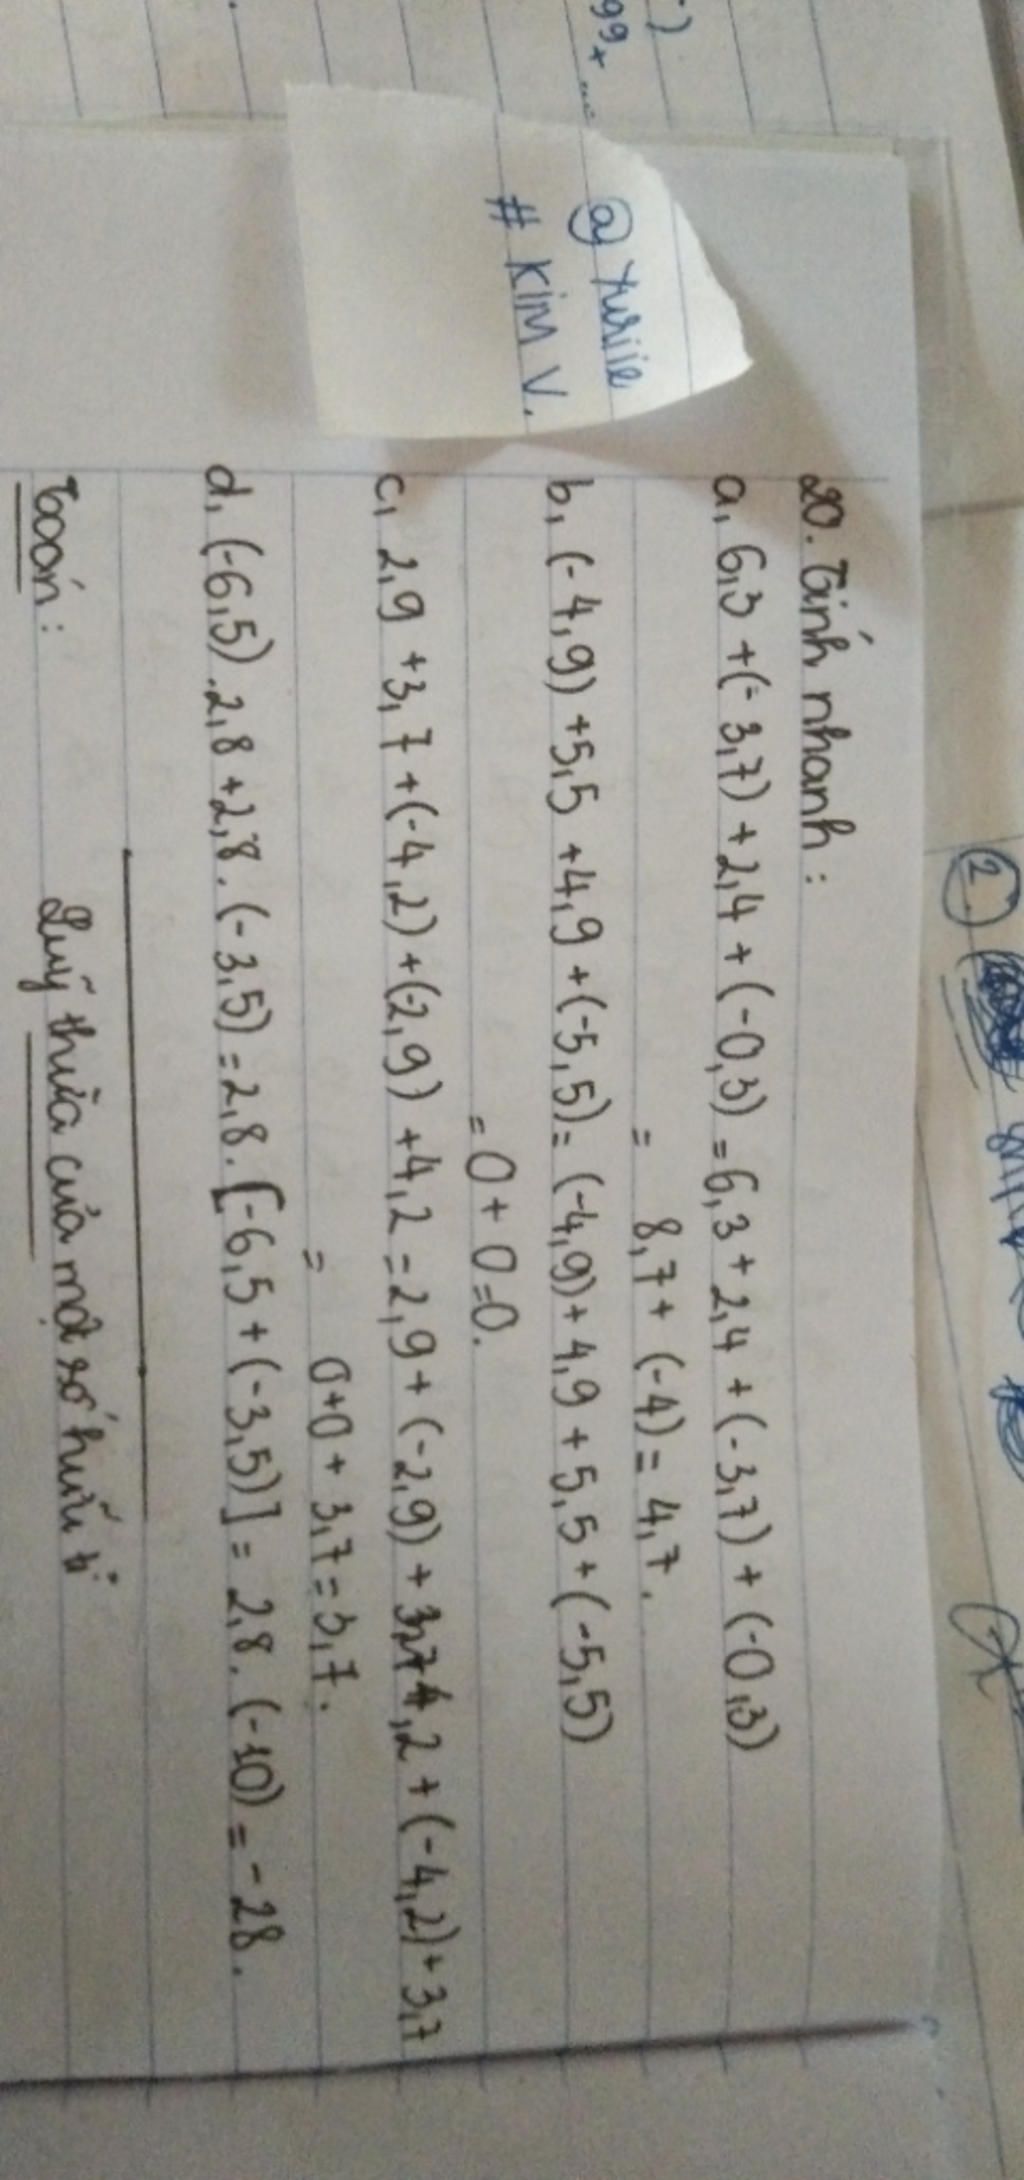 @ Yuriie
# KIM V.
20. Tính nhanh :
a, 6,3 + (-3,7) + 2,4 + (-0,3) = 6,3 + 2,4 + (-3,7) + (-0,3)
= 8,7 + (-4) = 4,7.
b, (-4,9) + 5,5 + 4,9 + (-5,5) = (-4,9) + 4,9 + 5,5 + (-5,5)
= 0 + 0 = 0.
c, 2,9 + 3,7 + (-4,2) + (-2,9) + 4,2 = 2,9 + (-2,9) + 4,2 + (-4,2) + 3,7
= 0 + 0 + 3,7 = 3,7.
d, (-6,5) . 2,8 + 2,8 . (-3,5) = 2,8 . [-6,5 + (-3,5)] = 2,8 . (-10) = -28.
Toán :
Luỹ thừa của một số hữu tỉ
99 + ...
2.